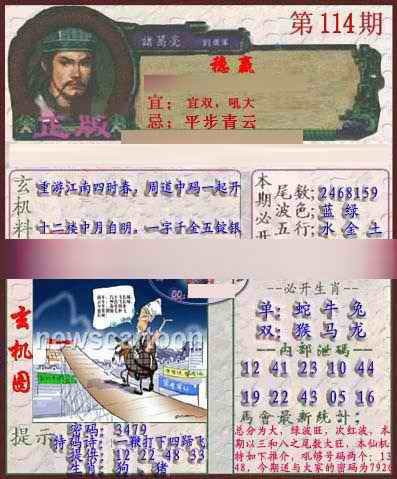 第114期
諸葛亮
劉備軍
稳赢
宜：宜双，吼大
忌：平步青云
正版
玄机料
重游江南四时春，周道中码一起开
十二楼中月自明，一字千金五锭银
本期必开
尾数：2468159
波色：蓝 绿
五行：水 金 土
玄机图
newscartoon
必开生肖
单：蛇 牛 兔
双：猴 马 龙
内部泄码
12 41 23 10 44
19 22 43 05 16
马会最新统计：
总分为大，绿波旺，次红波，本
期以三和八之尾数大旺，本仙机
特如下推介，吼够号码两个：13
48，今期送与大家的密码为7926
提示
密码：3479
特码诗：一鞭打下四蹄飞
提供：12 22 48 33
生肖：狗、猪